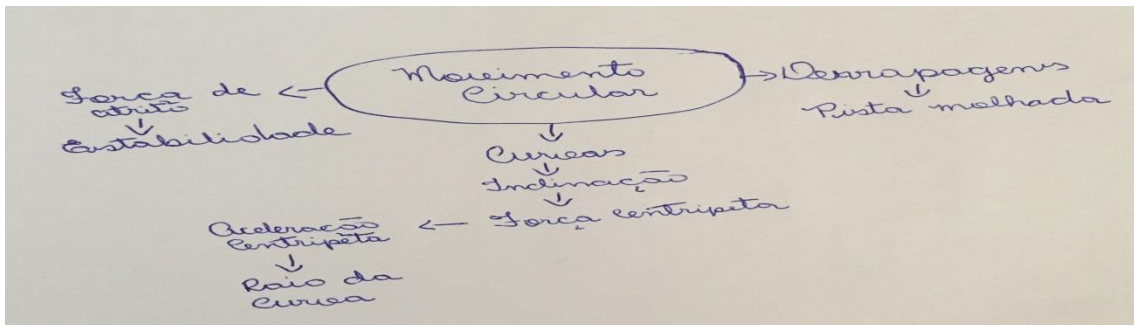 Movimento
Circular
Força de
atrito
Estabilidade
Derrapagens
Pista molhada
Curvas
Inclinação
Força Centripeta
Aceleração
Centripeta
Raio da
Curva